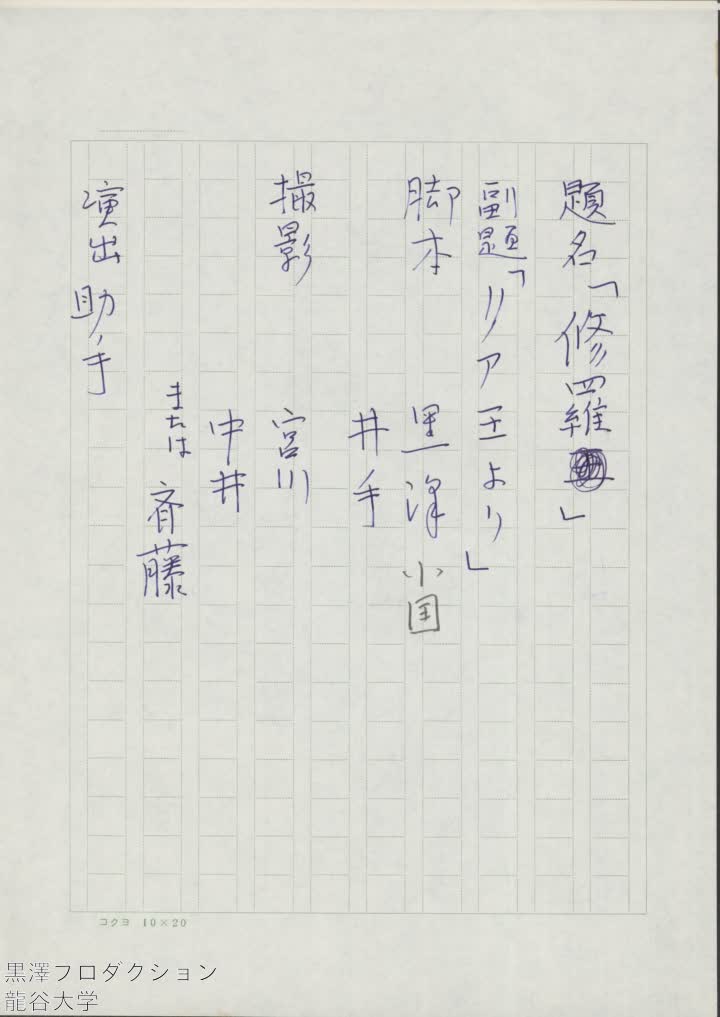 題名「修羅」
副題「リア王より」
脚本 黒澤 小国
井手
撮影 宮川
中井
または 斉藤
演出助手
コクヨ 10×20
黒澤プロダクション
龍谷大学